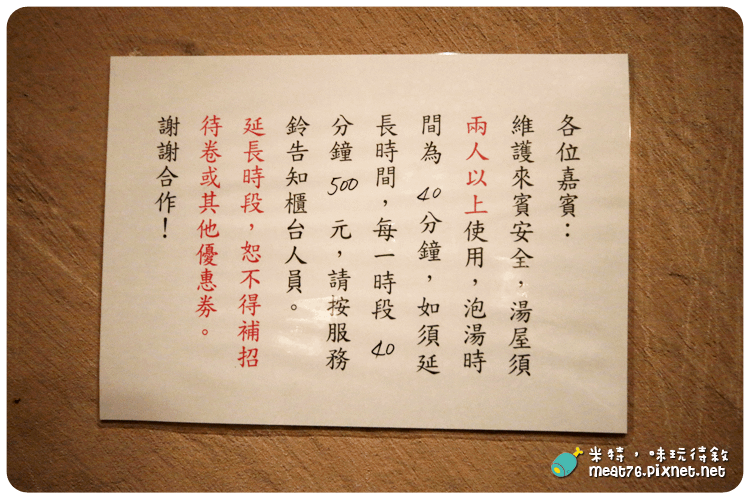 各位嘉賓：
維護來賓安全，湯屋須
兩人以上使用，泡湯時
間為 40 分鐘，如須延
長時間，每一時段 40
分鐘 500 元，請按服務
鈴告知櫃台人員。
延長時段，恕不得補招
待卷或其他優惠劵。
謝謝合作！
米特，味玩待敘
meat76.pixnet.net